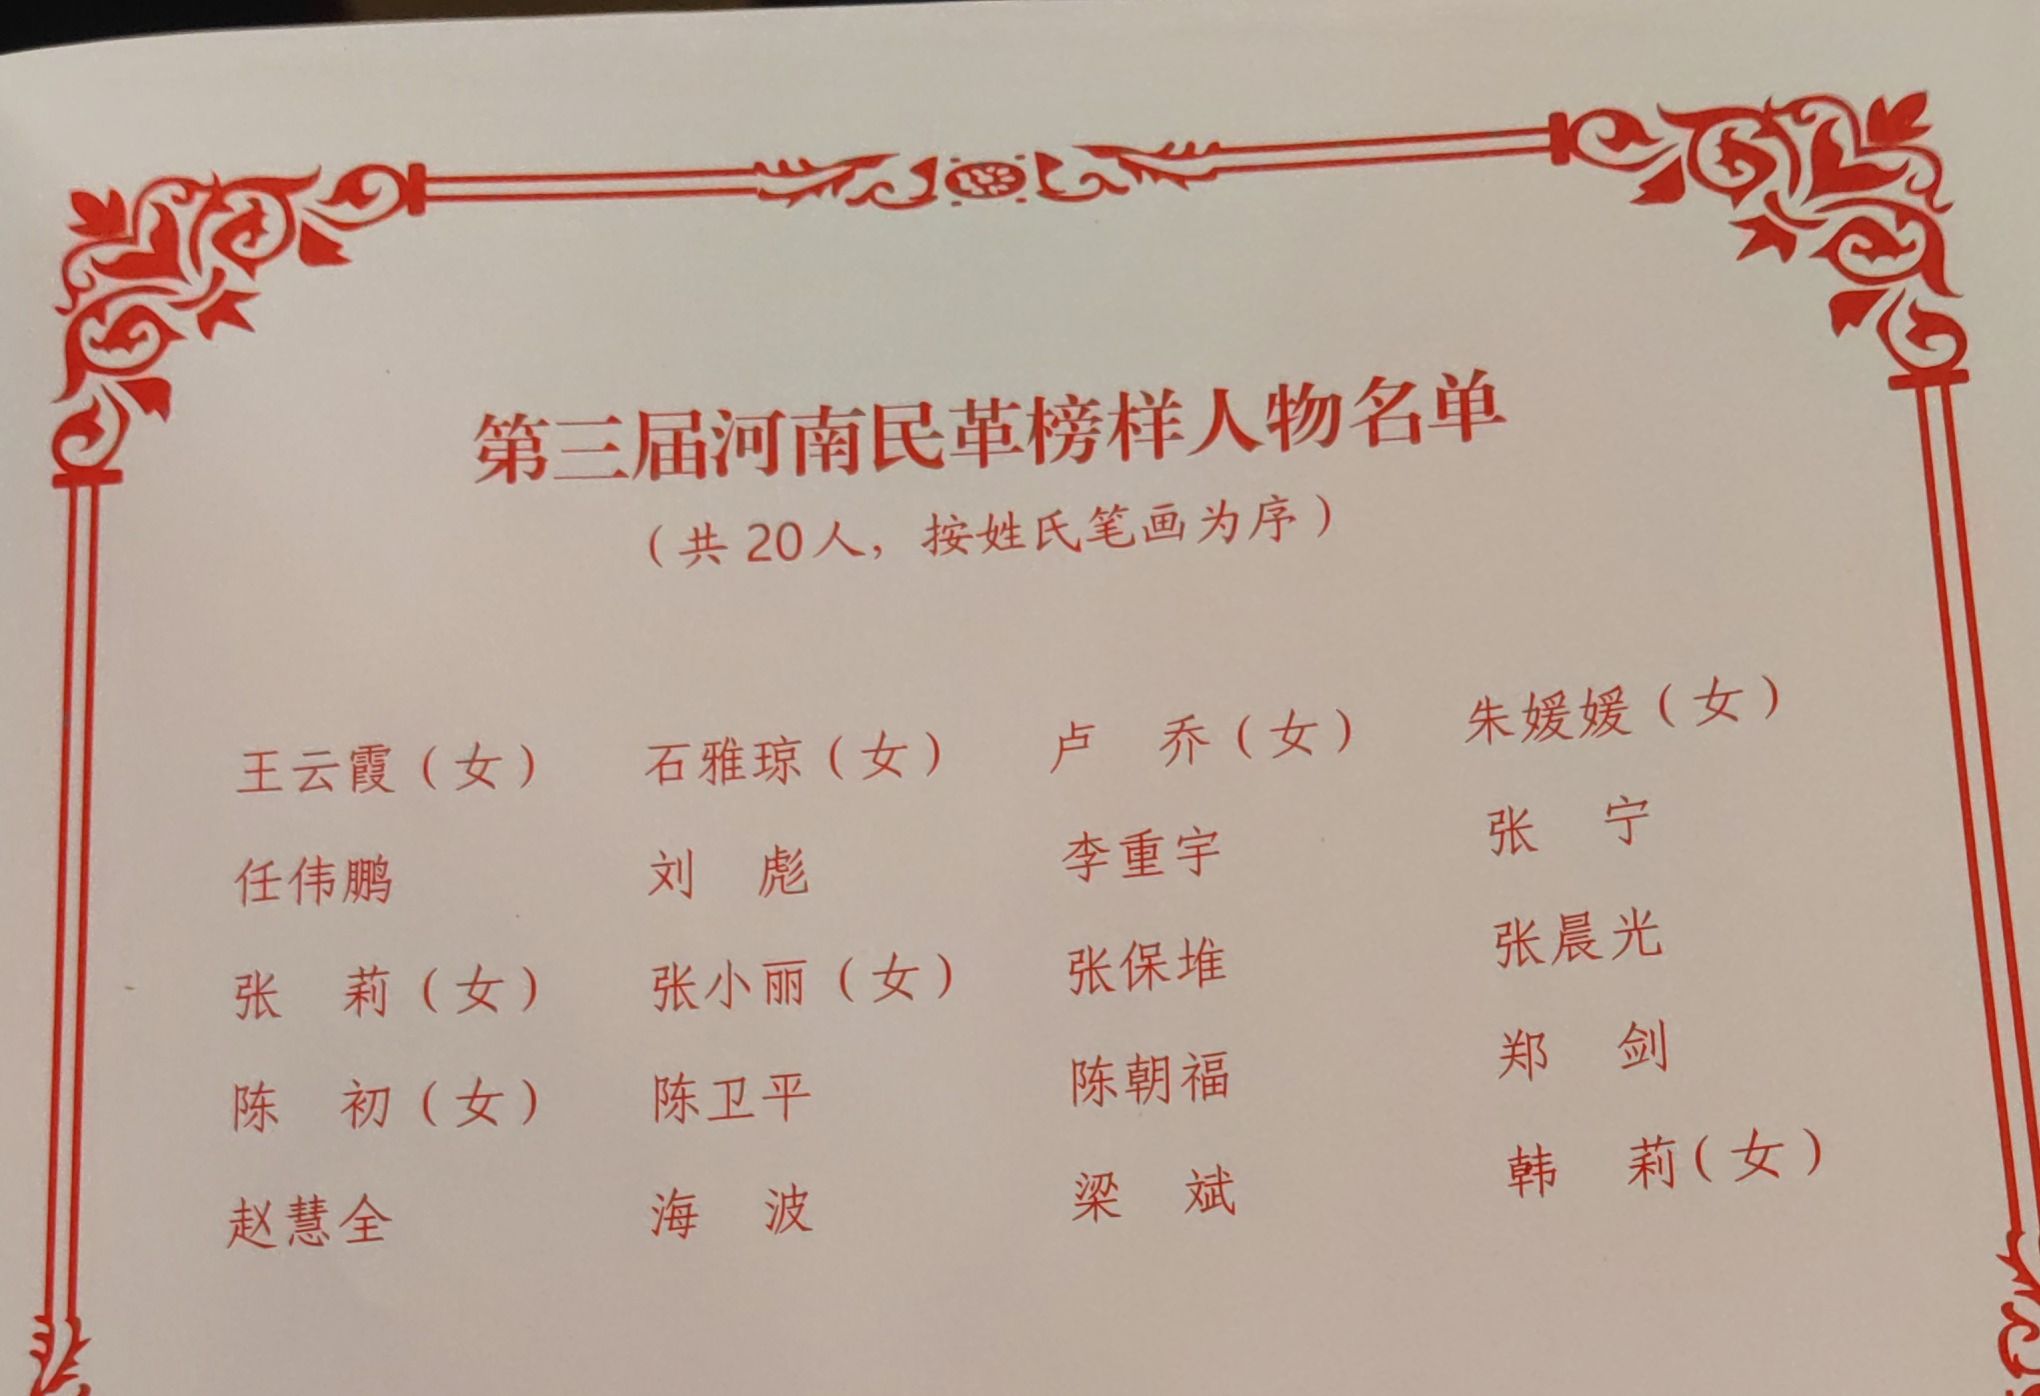 第三届河南民革榜样人物名单
（共20人，按姓氏笔画为序）
王云霞（女） 石雅琼（女） 卢　乔（女） 朱媛媛（女）
任伟鹏 刘　彪 李重宇 张　宁
张　莉（女） 张小丽（女） 张保堆 张晨光
陈　初（女） 陈卫平 陈朝福 郑　剑
赵慧全 海　波 梁　斌 韩　莉（女）